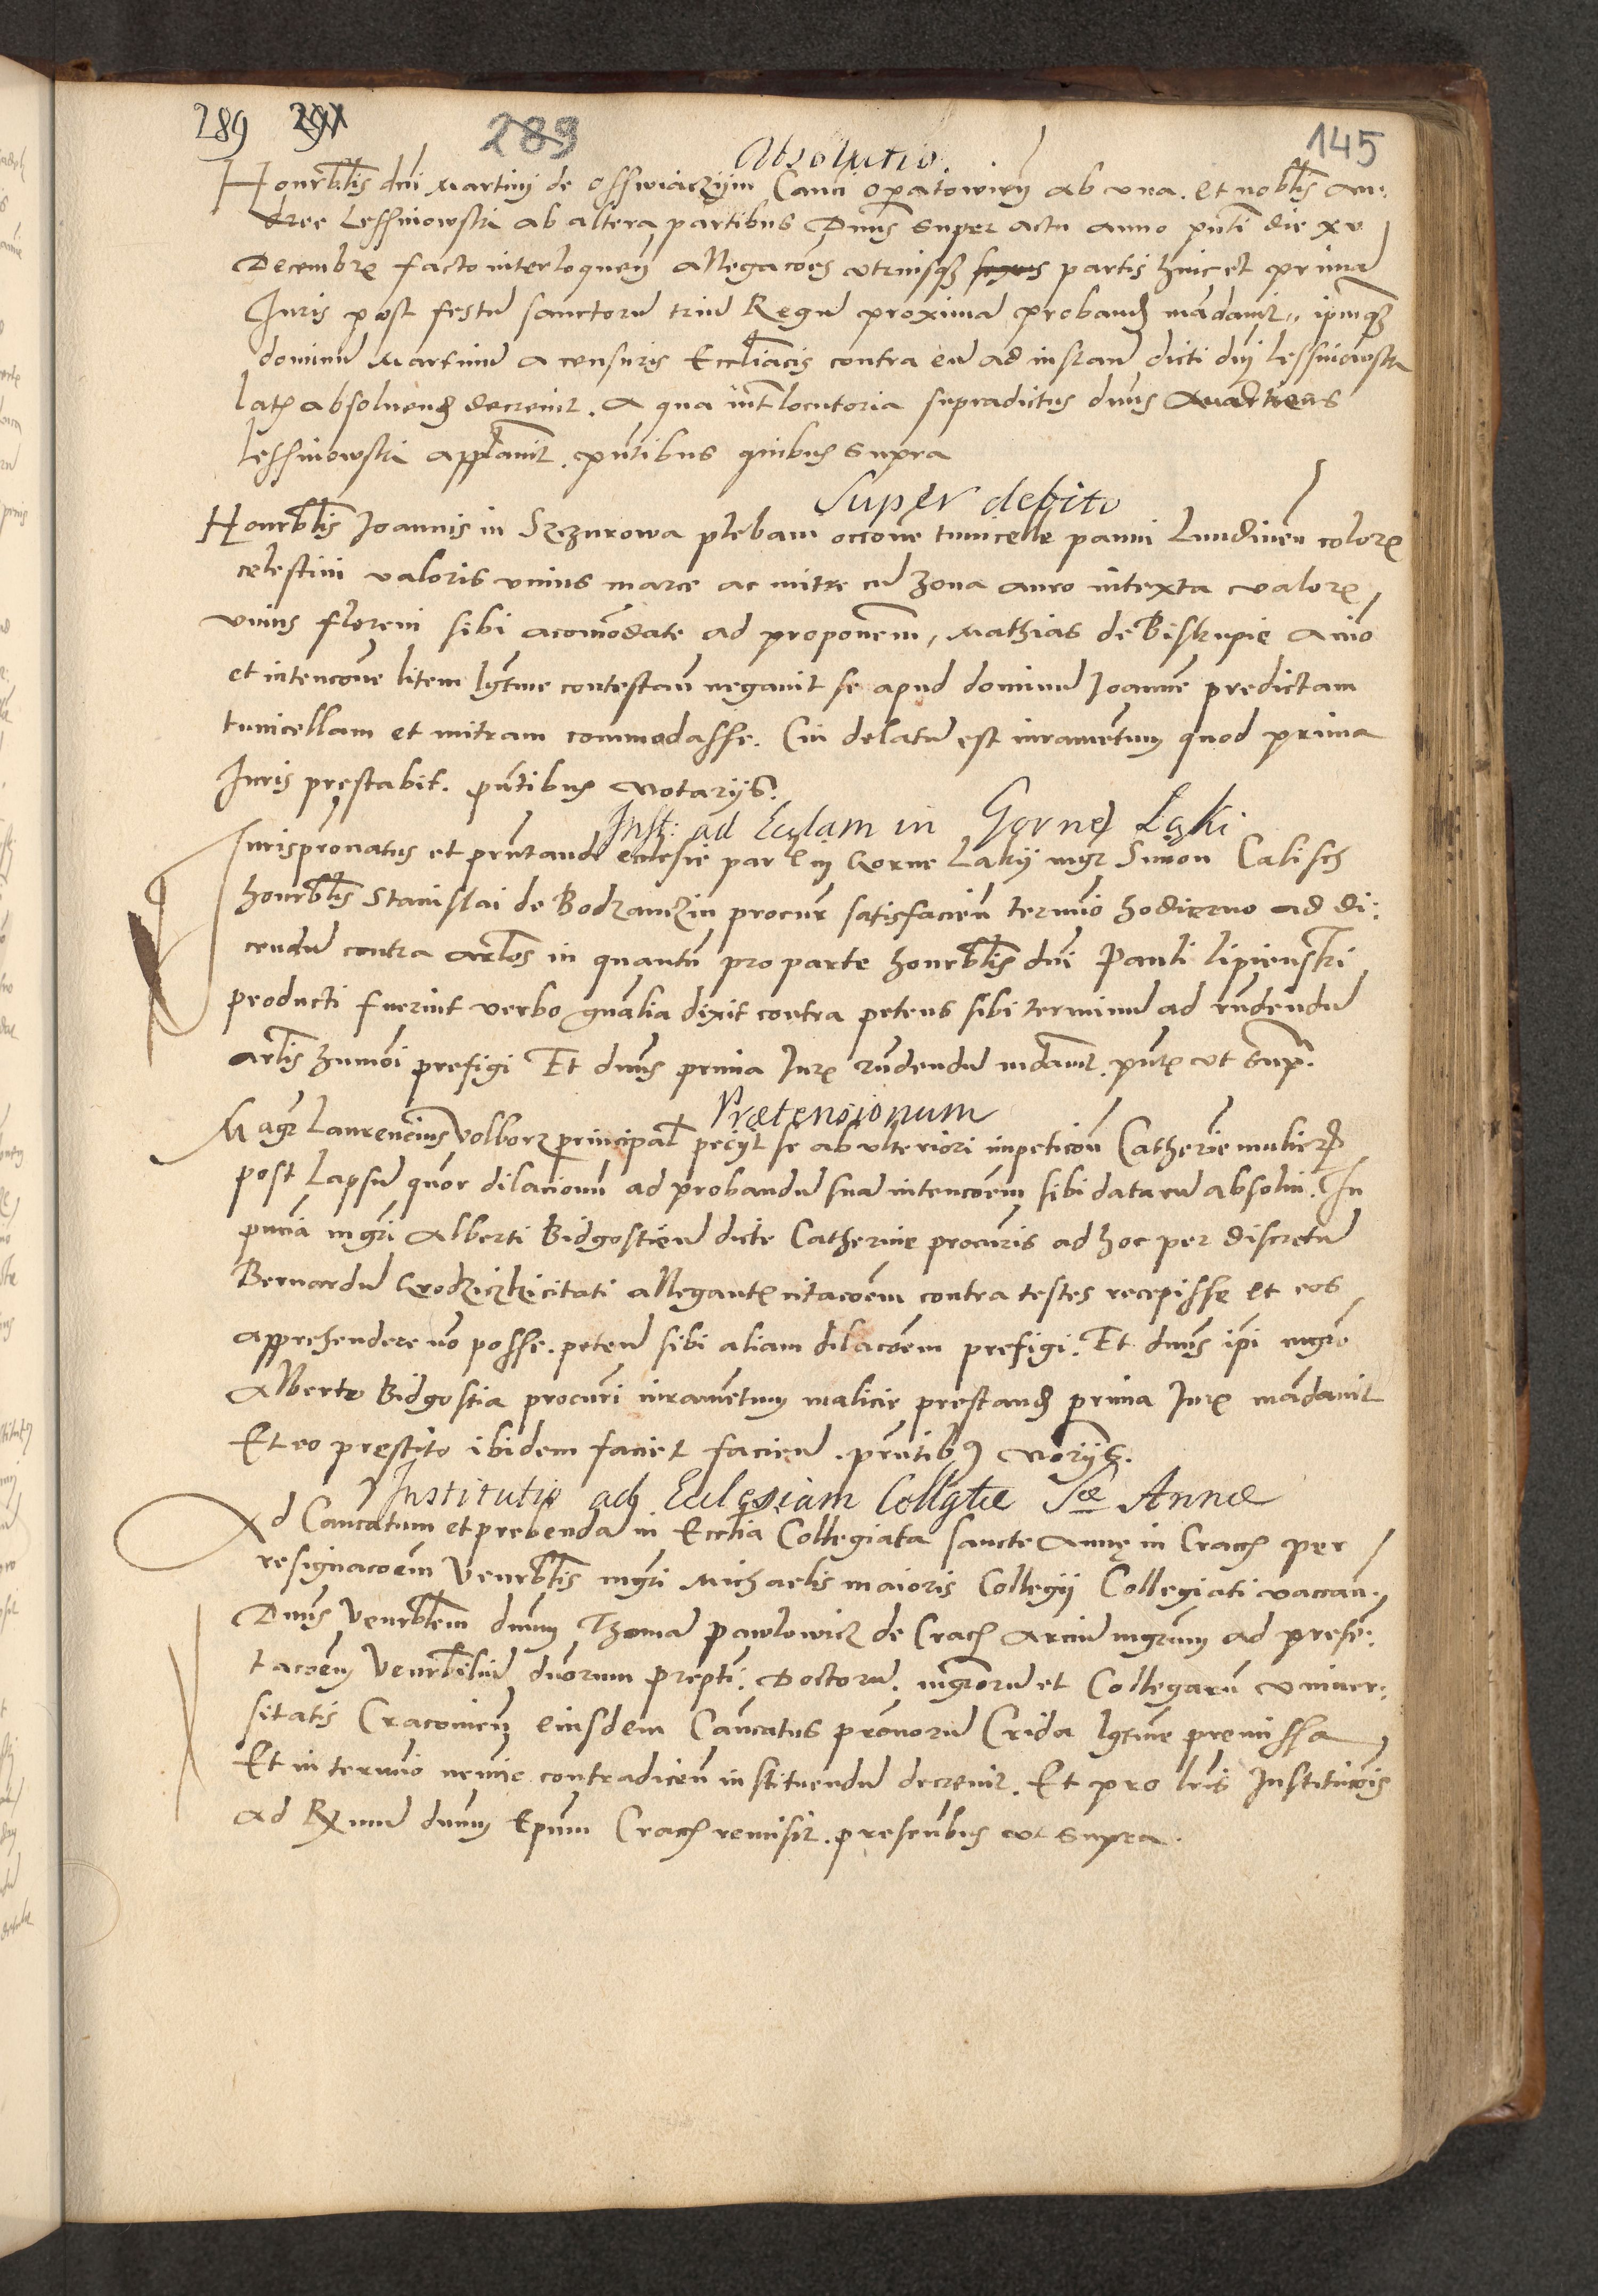 289 291 289 145
Absolutio.
Honrblis dni Martini de Osswiaczym Canci Opatowien ab vna. et noblis An:
dree Lessniowski ab altera partibus Dnus super actu anno pnti die xv
Decembr facto interloquen allegacoes vtriusqz partis hinc et prima
Juris post festu sanctoru triu Regu proxima proband mandauit ipmqz
dominu Martinu a censuris Eccliacis contra eu ad instan dicti dni Lessniowski
lat absoluend decreuit. A qua intlocutoria supradictus dnus Andreas
Lessniowski applauit. pntibus quibus supra
Super debito
Honrblis Joannis in Szczurowa plebani occone tunicelle panni Lundinen color
celestini valoris vnius marce ac mitre cu zona auro intexta valor
vnius floreni sibi acomodate ad proponem, Mathias de Biskupie aio
et intencone litem lgtme contestan negauit se apud dominu Joanne predictam
tunicellam et mitram commodasse. Cui delatu est iuramentum quod prima
Juris prestabit. pntibus Notarijs.
Inst: ad Ecclam in Gornej Łąki
Jurispronatus et pntandi ecclesie par in Gorne Laky mgr Simon Calisch
honrblis Stanislai de Bodzanczin procur satisfacien termio hodierno ad di:
cendu contra artlos in quantu pro parte honrblis dni Pauli Lipienski
producti fuerint verbo gnalia dixit contra petens sibi terminu ad rndendu
artlis hmoi prefigi Et dnus prima Jur rndendu mdauit. pnt vt sup.
Prætensionum
Magr Laurencius Volborz principal peciyt se ab vlteriori inpeticon Catherie mulier
post Lapsu quor dilacionu ad probandu sua intencoem sibi dataru absolui. In
pncia mgri Alberti Bidgostien dicte Catherine procuris ad hoc per discretu
Bernardu Grodziczki citati allegant citacoem contra testes recepisse et eos
apprehendere no posse. peten sibi aliam dilacoem prefigi. Et dnus ipi mgro
Alberto Bidgostia procuri iuramentum malicie prestand prima Jur mandauit
Et eo prestito ibidem faciet facien. pntibus Norijs.
Institutio ad Ecclesiam Collgtæ Sæ Annæ
Ad Cancatum et prebenda in Ecclia Collegiata sancte Anne in Crach per
resignacoem Venrblis mgri Michaelis maioris Collegij Collegiati vaccan
Dnus Venrblem dnum Thoma Pawlowicz de Crach Arciu mgrum ad prese:
tacoem Venrbiliu dnorum prepti: Doctoru. mgroru et Collegaru vniuer:
sitatis Cracouien eiusdem Cancatus pronoru Crida lgtme premissa
Et in termio nemie contradicen instituendu decreuit. Et pro lris Institucois
Ad Rximu dnum Epum Crach remisit. presentibus vt supra.